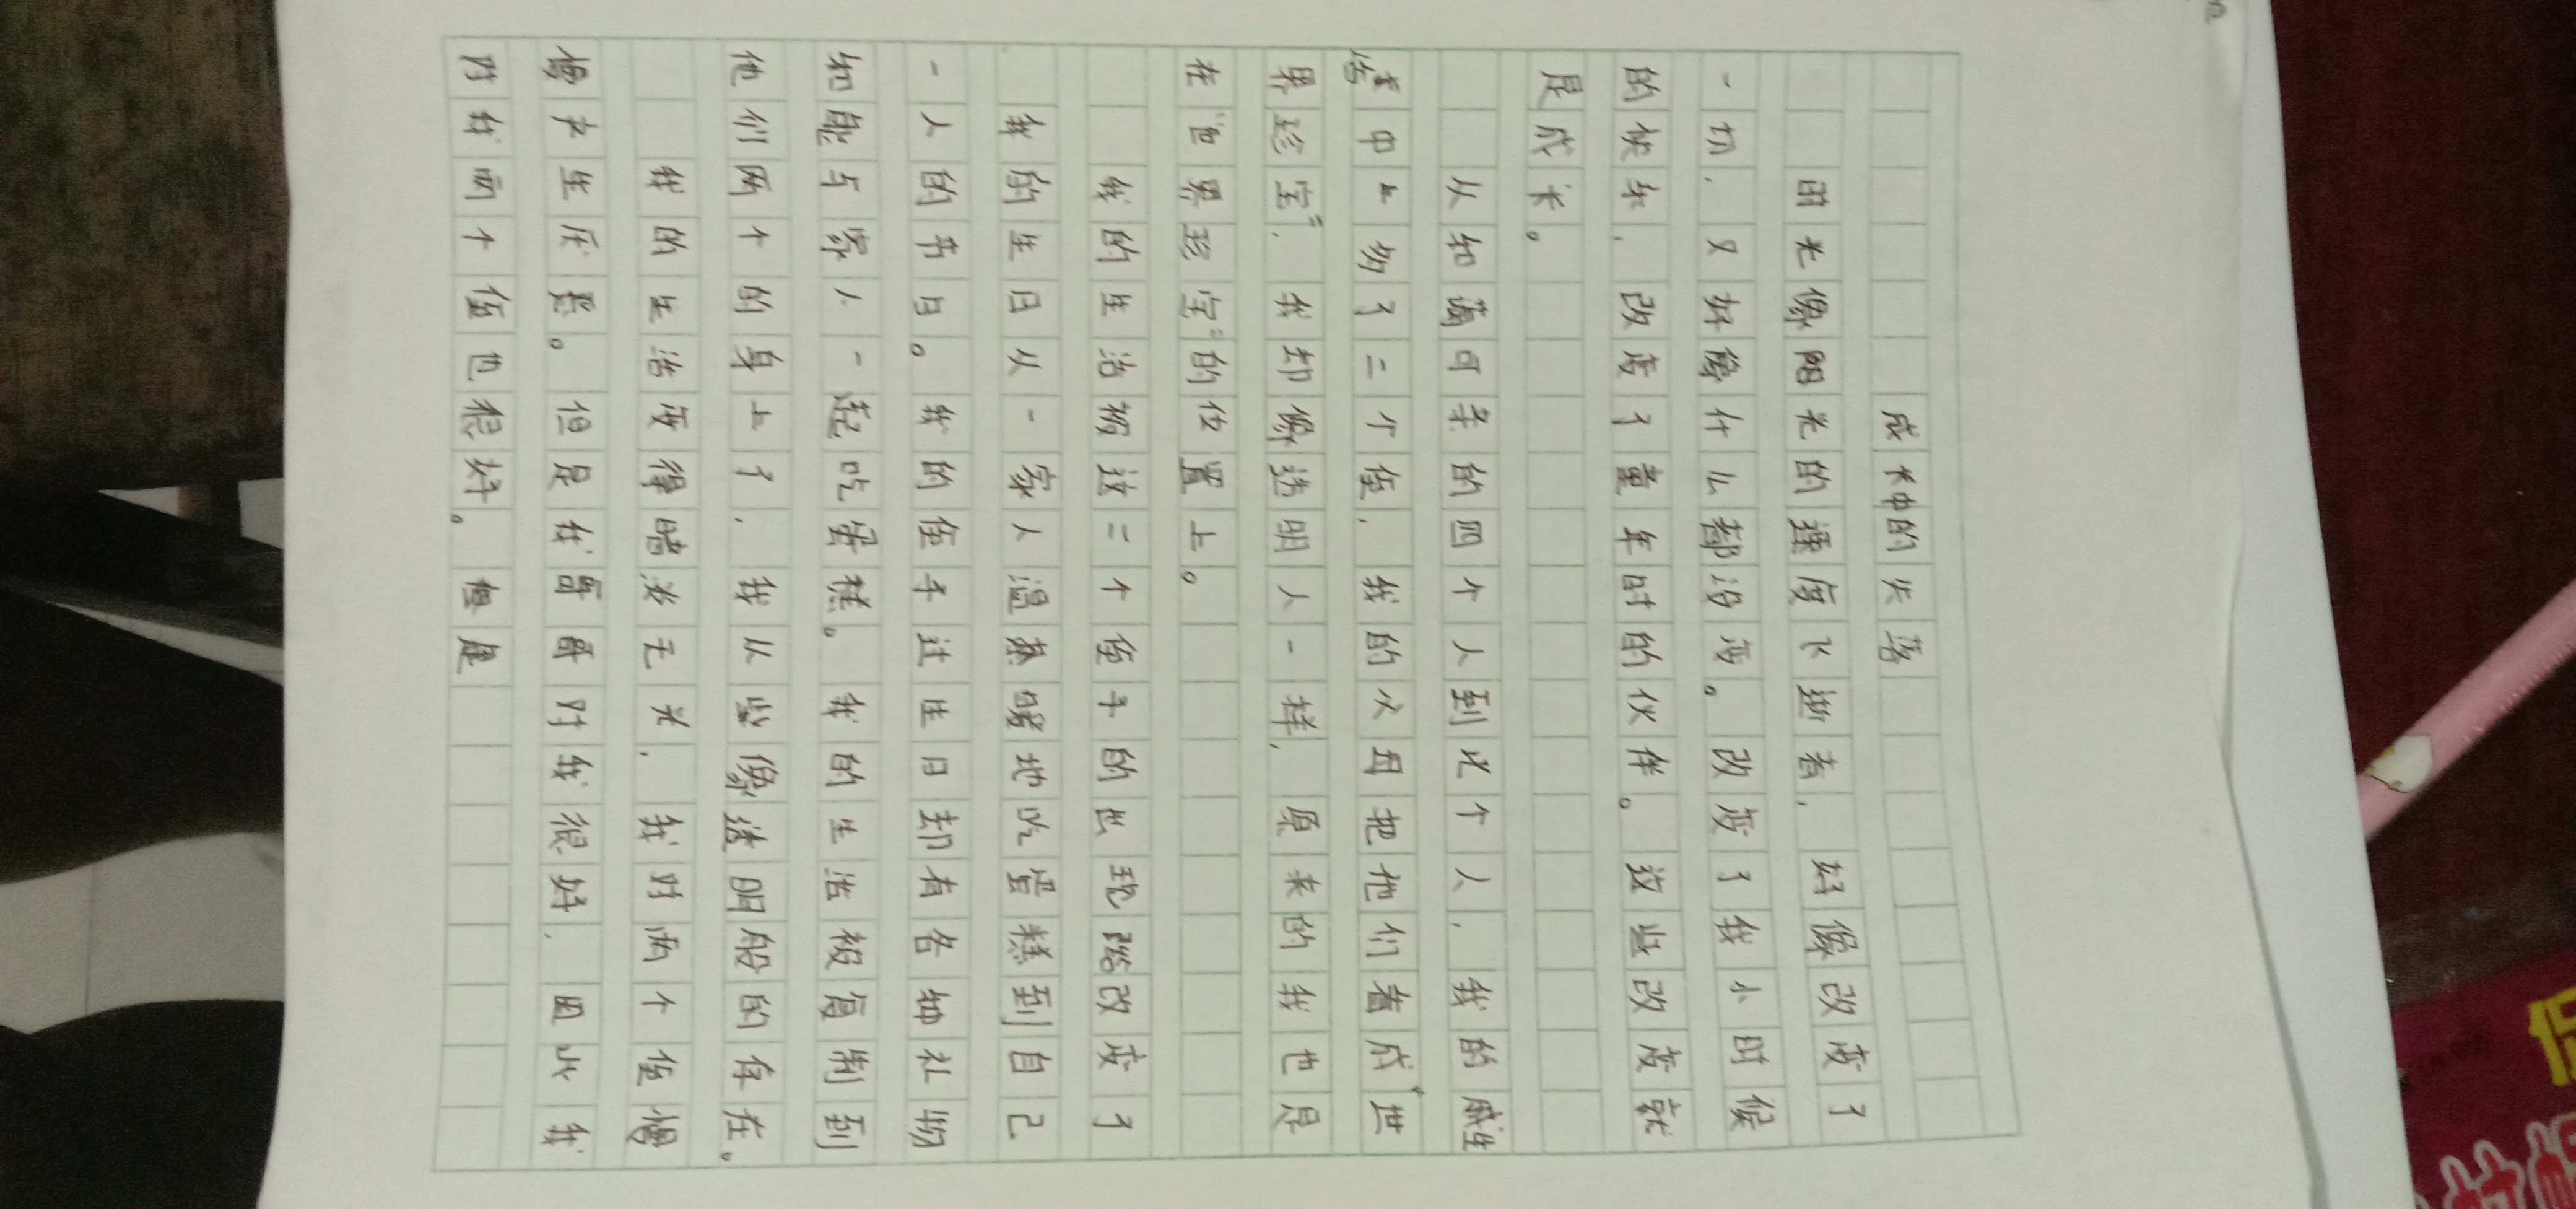 成长中的失落
时光像阳光的速度飞逝着,好像改变了
一切,又好像什么都没变。改变了我小时候
的快乐,改变了童年时的伙伴。这些改变就
是成长。
从知蔼可亲的四个人到比个人,我的
中上多了二个侄,我的父母把他们看成“世
界珍宝”,我却像透明人一样,原来的我也是
在“世界珍宝”的位置上。
我的生活被这二个侄子的出现改变了
我的生日从一家人温蒸暖地吃蛋糕到自己
一人的节日。我的侄子过生日却有各种礼物
和能与家人一起吃蛋糕。我的生活被复制到
他们两个的身上了,我从些像透明般的存在。
我的生活变得暗淡无光,我对两个侄慢
慢产生厌恶。但是我哥哥对我很好,因此我
对我两个侄也很好。慢慢